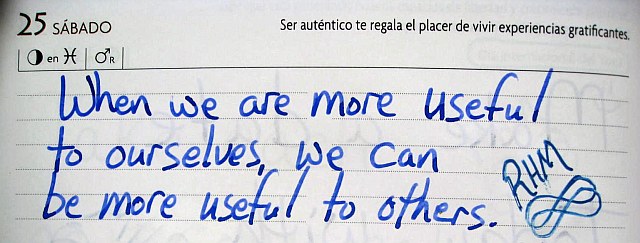 25 SÁBADO
Ser auténtico te regala el placer de vivir experiencias gratificantes.
en ♓ ♂R
When we are more useful
to ourselves, we can
be more useful to others.
RHM